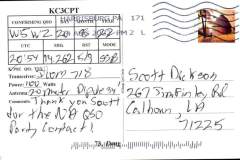 KC3CPT
HARRISBURG PA 171
CONFIRMING QSO
DAY
MONTH
YEAR
W5WZ
UTC
MHZ
RST
MODE
20:54
14.262
59
SSB
Transceiver:
Power: 100 Watts
Antenna: 20 Meter Dipole
Comments:
Thank you Scott
for the
QSO
Party contact!
73, Doug
Scott Dickson
Calhoun, LA
71225